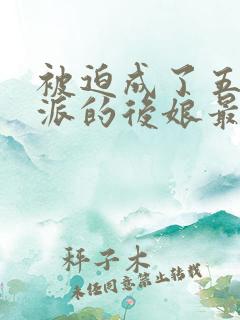 被迫成了五
派的後娘最
秤子木
未经同意禁止转载